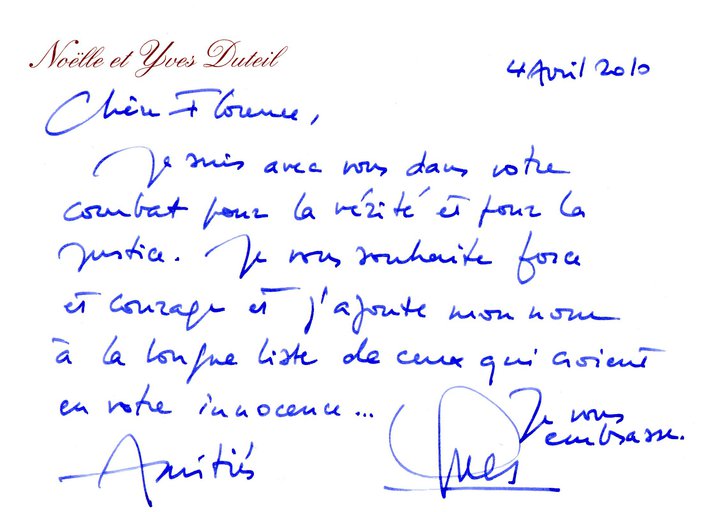 Noëlle et Yves Duteil
4 Avril 2010
Chère Florence,
Je suis avec vous dans votre
combat pour la vérité et pour la
justice. Je vous souhaite force
et courage et j'ajoute mon nom
à la longue liste de ceux qui croient
en votre innocence...
Je vous
embrasse.
Amitiés
Yves